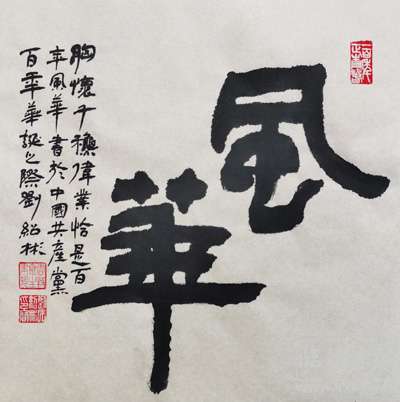 風華
胸懷千秋偉業恰是百
年風華書於中國共產黨
百年華誕之際劉紹彬